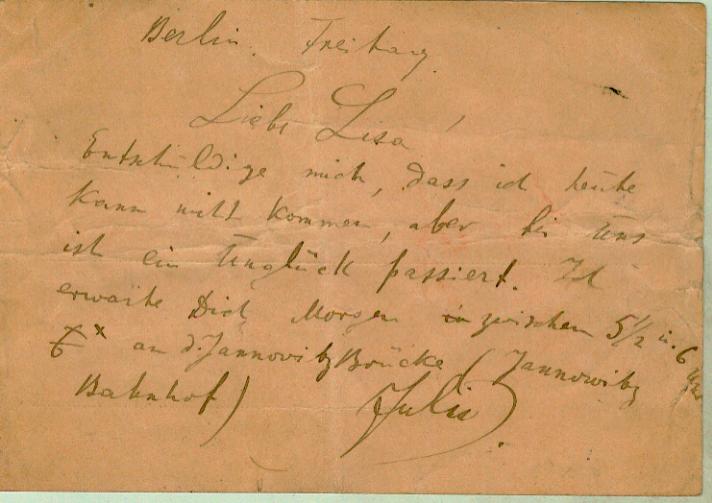 Berlin. Freitag.
Liebe Lisa!
Entschüldige mich, dass ich heute
kann nicht kommen, aber bei uns
ist ein Unglück passiert. Ich
erwarte Dich Morgen zwischen 5 1/2 u. 6 Uhr
an d. Jannowitz Brücke (Jannowitz
Bahnhof)